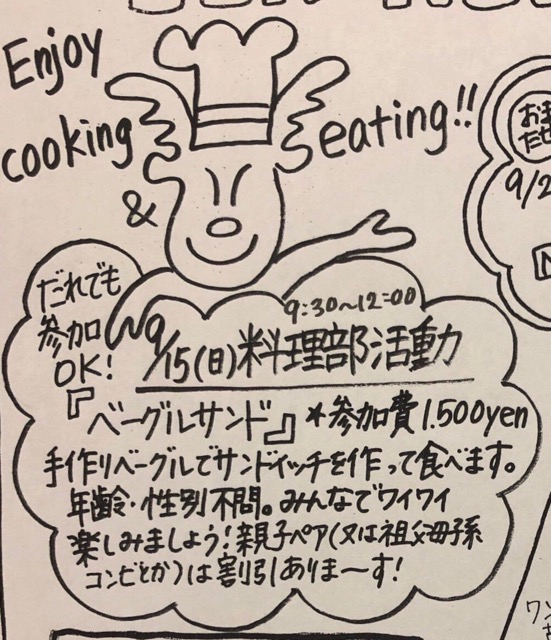 Enjoy
cooking
&
eating!!
だれでも
参加
OK!
9:30~12:00
9/15(日)料理部活動
『ベーグルサンド』 *参加費1.500yen
手作りベーグルでサンドイッチを作って食べます。
年齢・性別不問。みんなでワイワイ
楽しみましょう!親子ペア(又は祖父母子孫
コンビとか)は割引ありま〜す!
おま
たせ
9/2